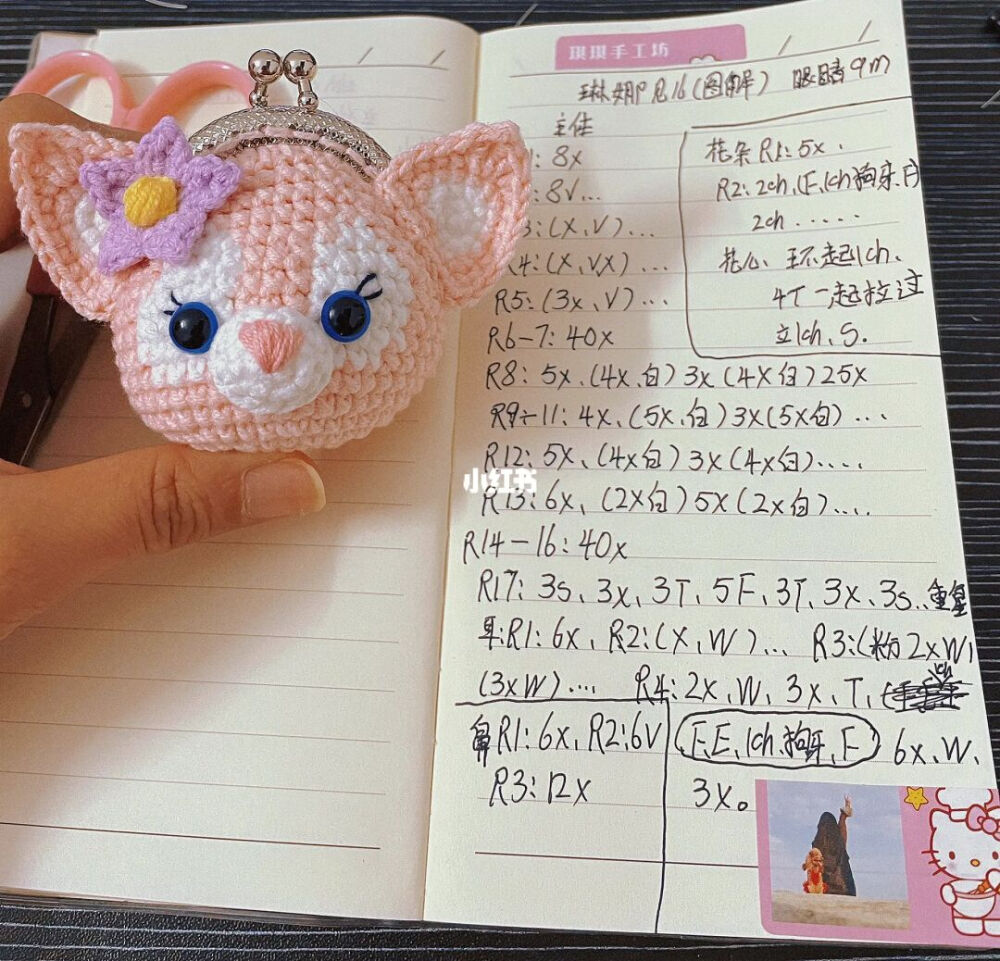 琪琪手工坊
琳娜尼16(图解) 眼睛9m
主体
: 8x
: 8V...
3:(X,V)...
R4:(X,VX)...
R5:(3x,V)...
R6-7:40x
R8: 5x、(4x、白)3x(4X白)25x
R9-11:4x、(5x、白)3x(5x白)...
R12:5x、(4x白)3x(4x白)....
R13:6x、(2x白)5x(2x白)....
R14-16:40x
R17: 3s、3x、3T、5F、3T、3x、3s..重复
耳:R1:6x、R2:(X,W)... R3:(粉2xW)
(3xW).... R4:2x、W、3x、T、
1ch
(F,E、1ch、狗牙、F) 6x、W、
3x。
鼻R1:6x、R2:6V
R3:12x
花朵R1:5x.
R2:2ch、(F、1ch狗牙、F)
2ch.....
花心、环起1ch、
4T一起拉过
立1ch、S.
小红书